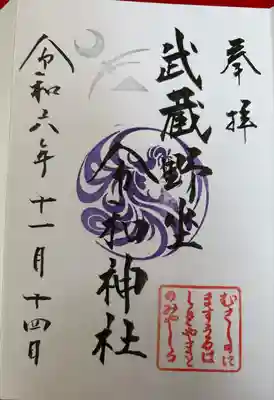 奉拝
武蔵野坐令和神社
むさしのに
ますうるは
しきやまと
のみやしろ
令和六年十一月十四日